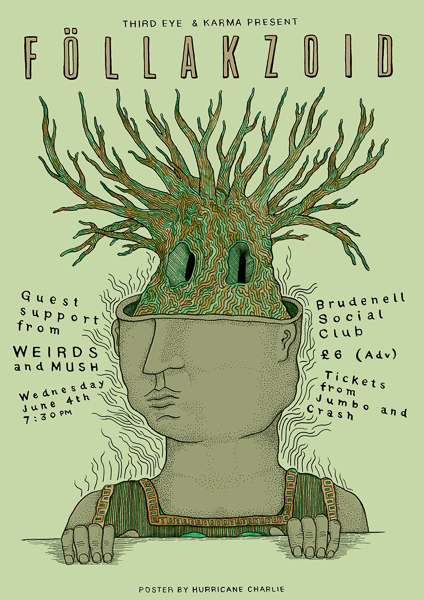 THIRD EYE & KARMA PRESENT
FÖLLAKZOID
Guest
support
from
WEIRDS
and MUSH
Wednesday
June 4th
7:30PM
Brudenell
Social
Club
£6 (Adv)
Tickets
from
Jumbo and
Crash
POSTER BY HURRICANE CHARLIE